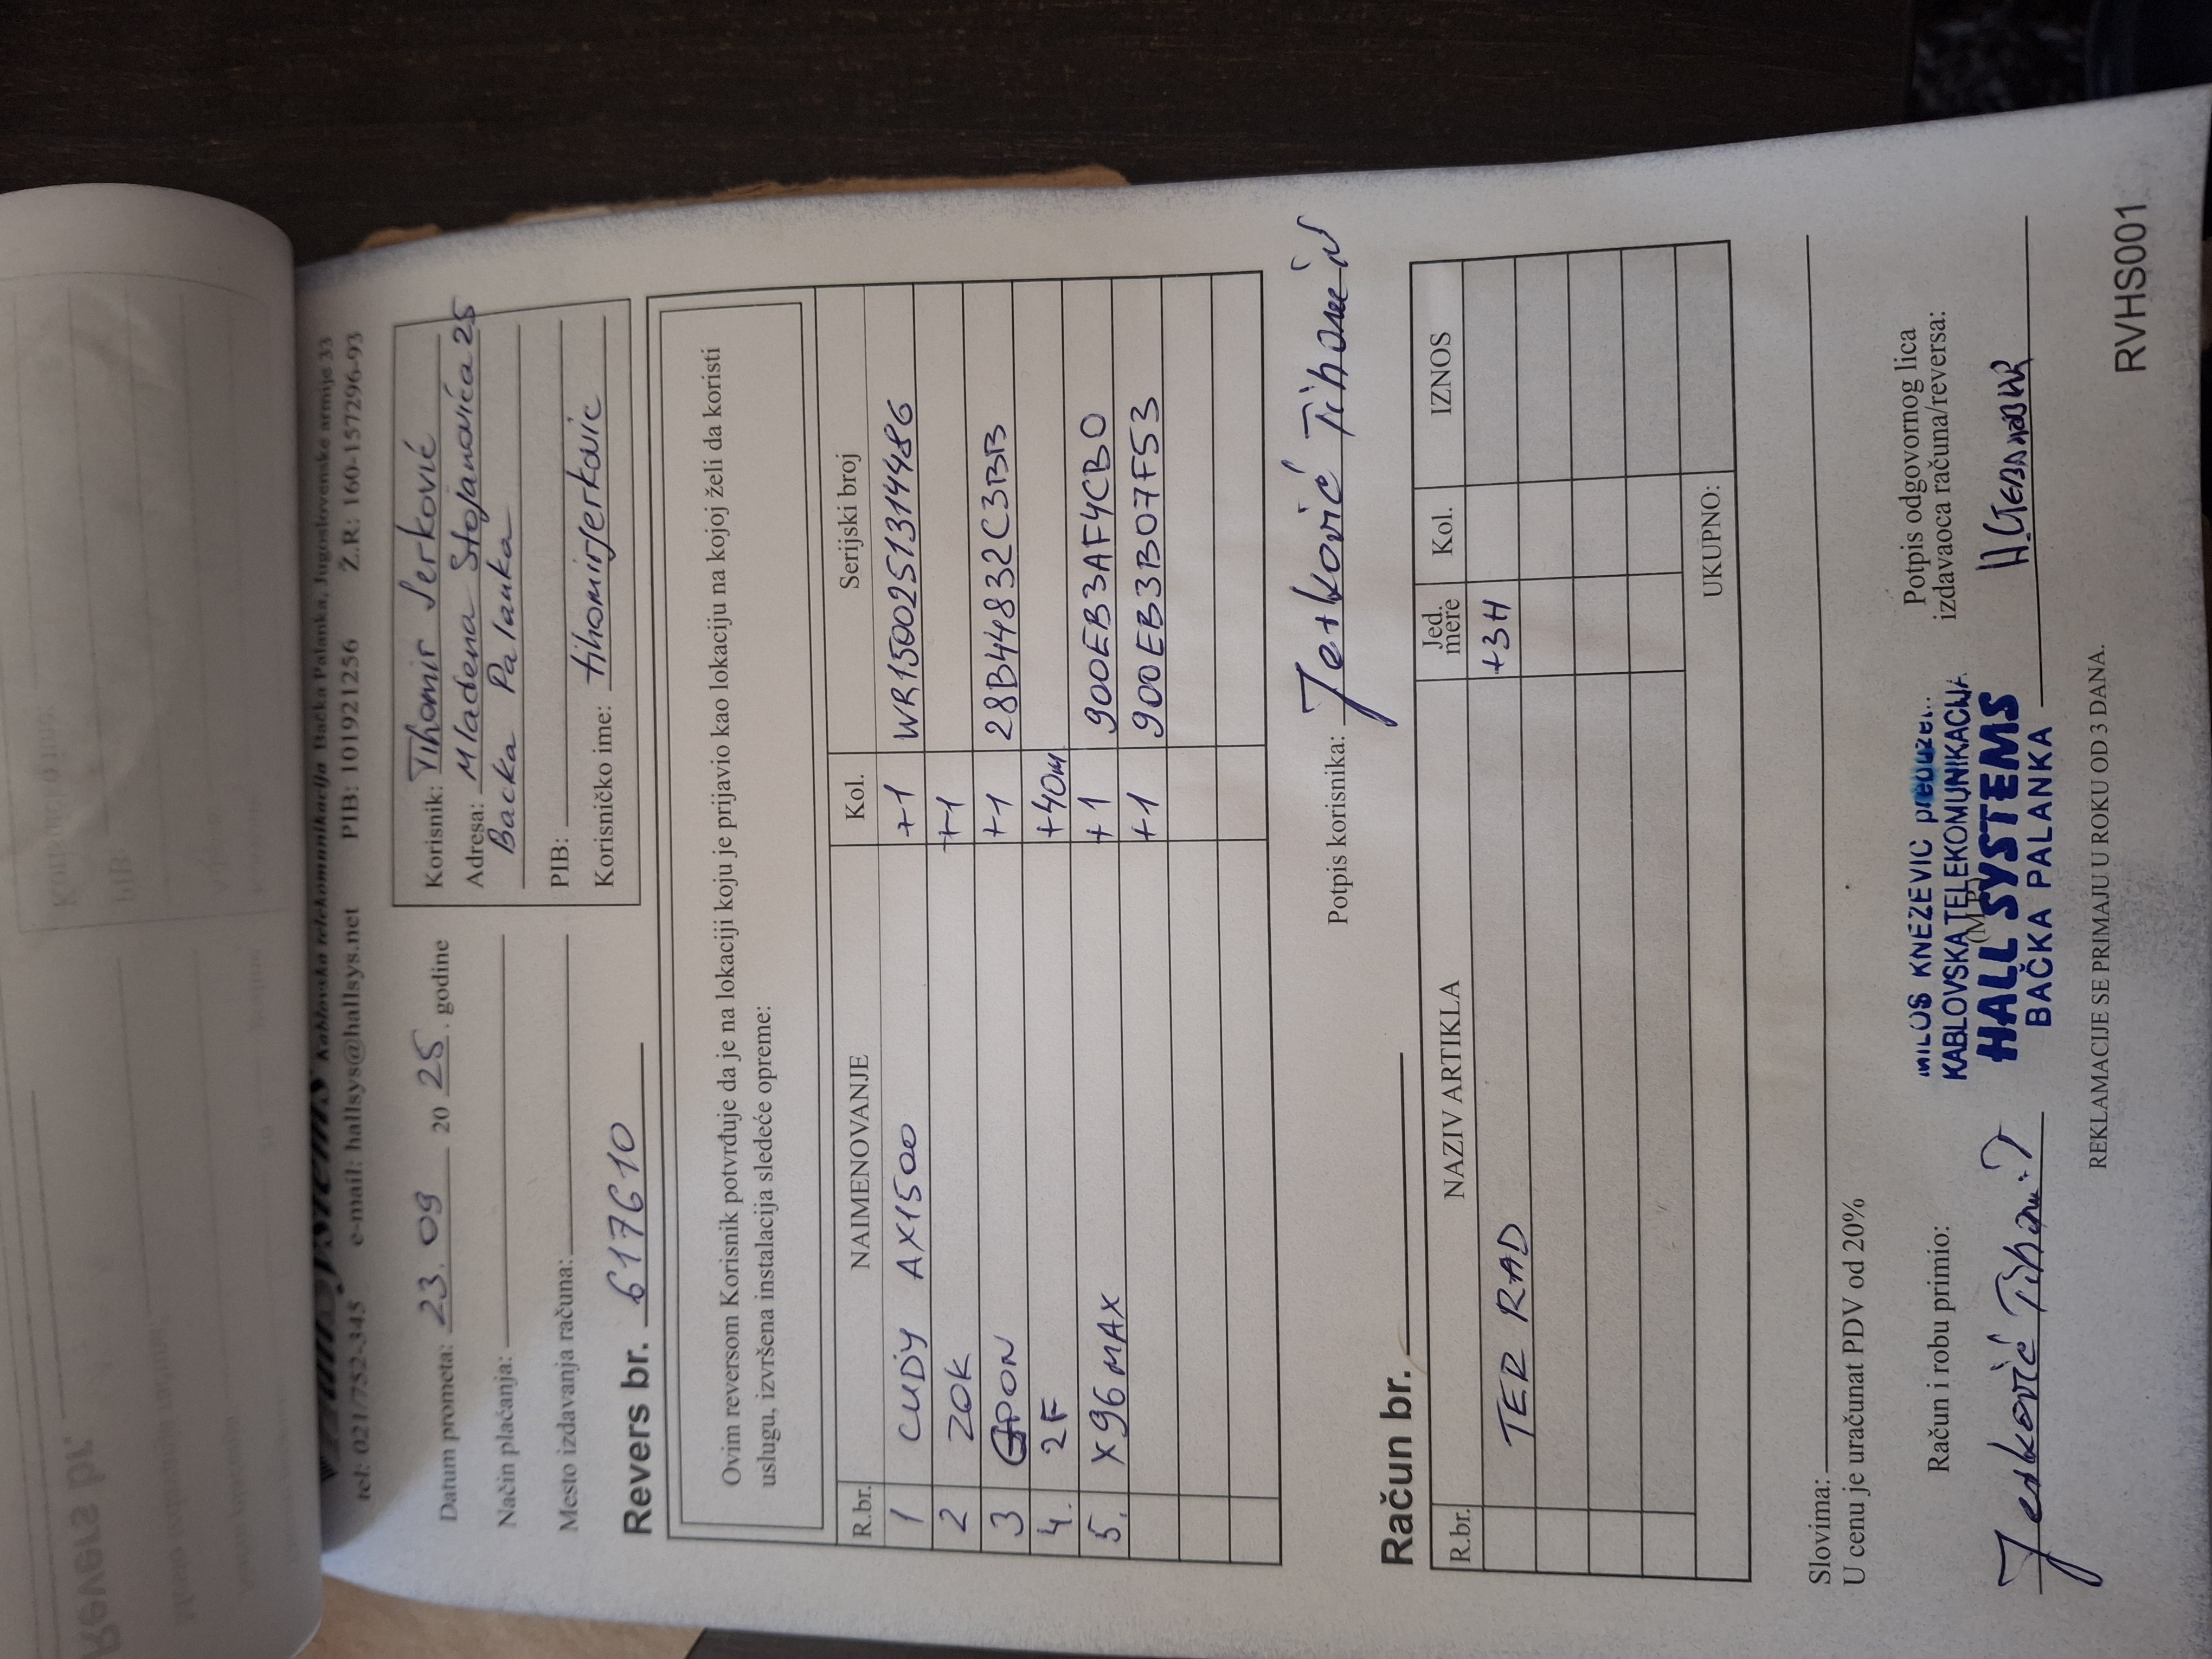 Hall Systems Kablovska telekomunikacija Bačka Palanka, Jugoslovenske armije 33
tel: 021/7752-345 e-mail: hallsys@hallsys.net PIB: 101921256 Ž.R: 160-157296-93
Datum prometa: 23. 09 20 25. godine
Način plaćanja:
Mesto izdavanja računa:
Korisnik: Tihomir Jerković
Adresa: Mladena Stojanovića 25
Backa Palanka
PIB:
Korisničko ime: tihomirjerkovic
Revers br. 617610
Ovim reversom Korisnik potvrđuje da je na lokaciji koju je prijavio kao lokaciju na kojoj želi da koristi
uslugu, izvršena instalacija sledeće opreme:
R.br. NAIMENOVANJE Kol. Serijski broj
1 CUDY AX1500 +1 WR15002513144486
2 ZOK +1
3 GPON +1 28B44832C3BB
4. 2F +40M
5. X96MAX +1 900EB3AF4CB0
+1 900EB3B07F53
Potpis korisnika:
Račun br.
R.br. NAZIV ARTIKLA Jed. mere Kol. IZNOS
TER RAD +3H
UKUPNO:
Slovima:
U cenu je uračunat PDV od 20%
Račun i robu primio:
(M.P.)
MILOŠ KNEZEVIC preduzet..
KABLOVSKA TELEKOMUNIKACIJA
HALL SYSTEMS
BAČKA PALANKA
Potpis odgovornog lica
izdavaoca računa/reversa:
REKLAMACIJE SE PRIMAJU U ROKU OD 3 DANA.
RVHS001